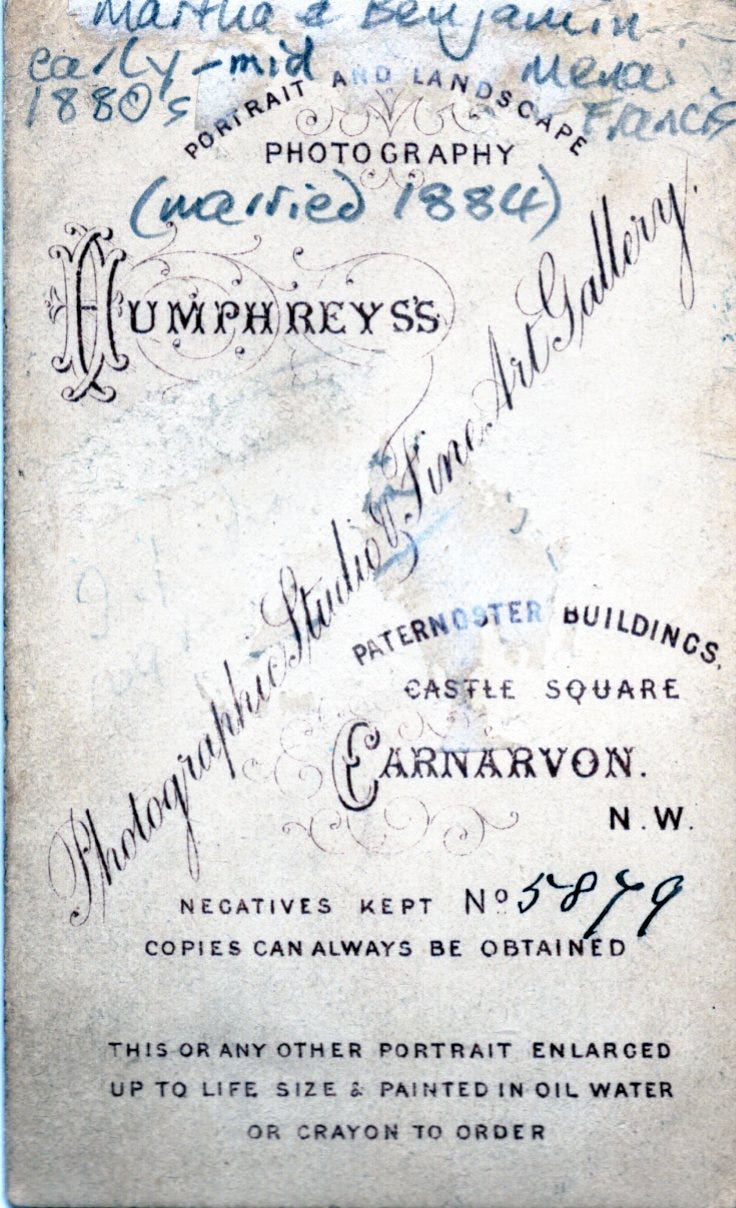 Martha & Benjamin
early-mid Menai
1880's Francis
PORTRAIT AND LANDSCAPE
PHOTOGRAPHY
(married 1884)
HUMPHREYS'S
Photographic Studio & Fine Art Gallery.
PATERNOSTER BUILDINGS,
CASTLE SQUARE
CARNARVON.
N.W.
NEGATIVES KEPT No 5879
COPIES CAN ALWAYS BE OBTAINED
THIS OR ANY OTHER PORTRAIT ENLARGED
UP TO LIFE SIZE & PAINTED IN OIL WATER
OR CRAYON TO ORDER